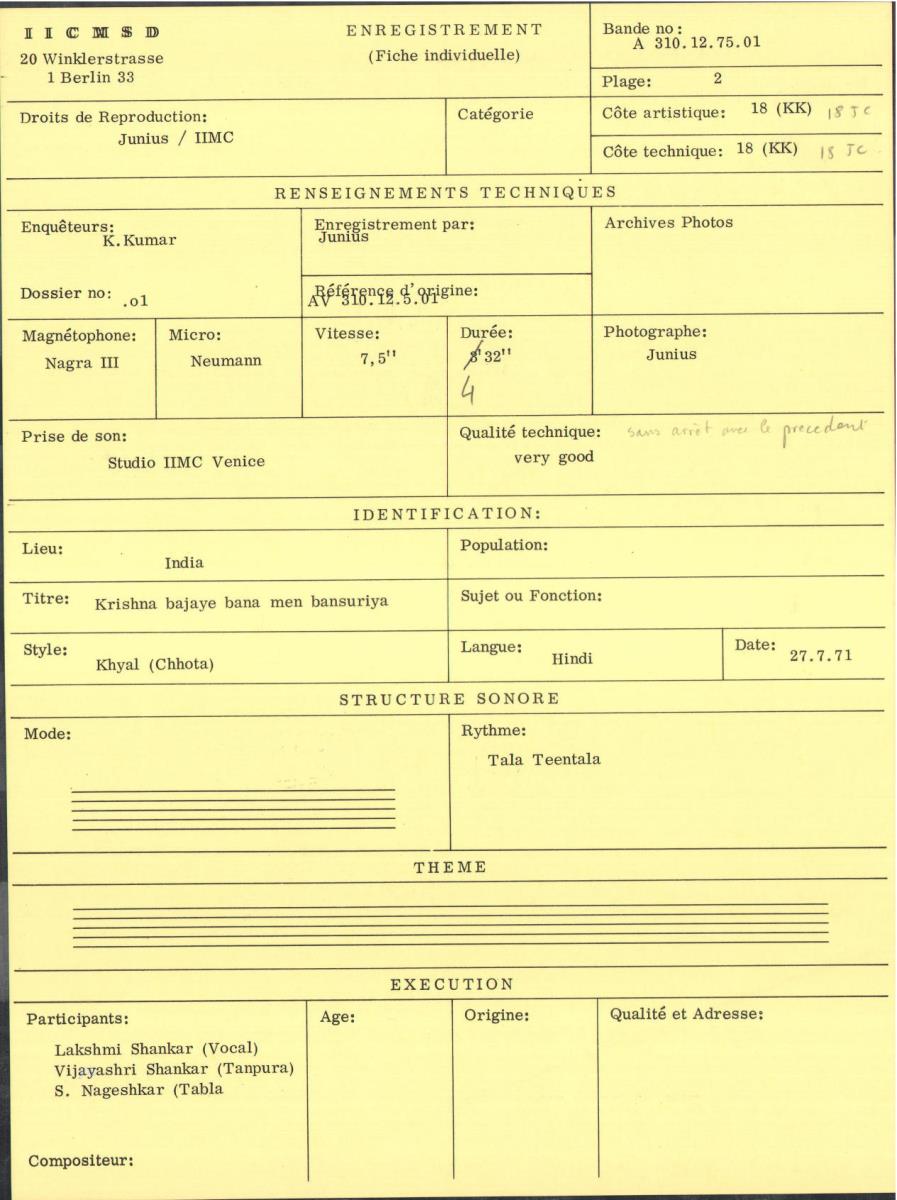 IICMSD
20 Winklerstrasse
1 Berlin 33
ENREGISTREMENT
(Fiche individuelle)
Bande no :
A 310.12.75.01
Plage: 2
Droits de Reproduction:
Junius / IIMC
Catégorie
Côte artistique: 18 (KK) 18 JC
Côte technique: 18 (KK) 18 JC
RENSEIGNEMENTS TECHNIQUES
Enquêteurs:
K.Kumar
Dossier no: .o1
Enregistrement par:
Junius
Référence d'origine:
AV 310.12.5.01
Archives Photos
Magnétophone:
Nagra III
Micro:
Neumann
Vitesse:
7,5"
Durée:
32"
4
Photographe:
Junius
Prise de son:
Studio IIMC Venice
Qualité technique: sans arrêt avec le precedent
very good
IDENTIFICATION:
Lieu:
India
Population:
Titre: Krishna bajaye bana men bansuriya
Sujet ou Fonction:
Style:
Khyal (Chhota)
Langue:
Hindi
Date:
27.7.71
STRUCTURE SONORE
Mode:
Rythme:
Tala Teentala
THEME
EXECUTION
Participants:
Lakshmi Shankar (Vocal)
Vijayashri Shankar (Tanpura)
S. Nageshkar (Tabla
Compositeur:
Age:
Origine:
Qualité et Adresse: